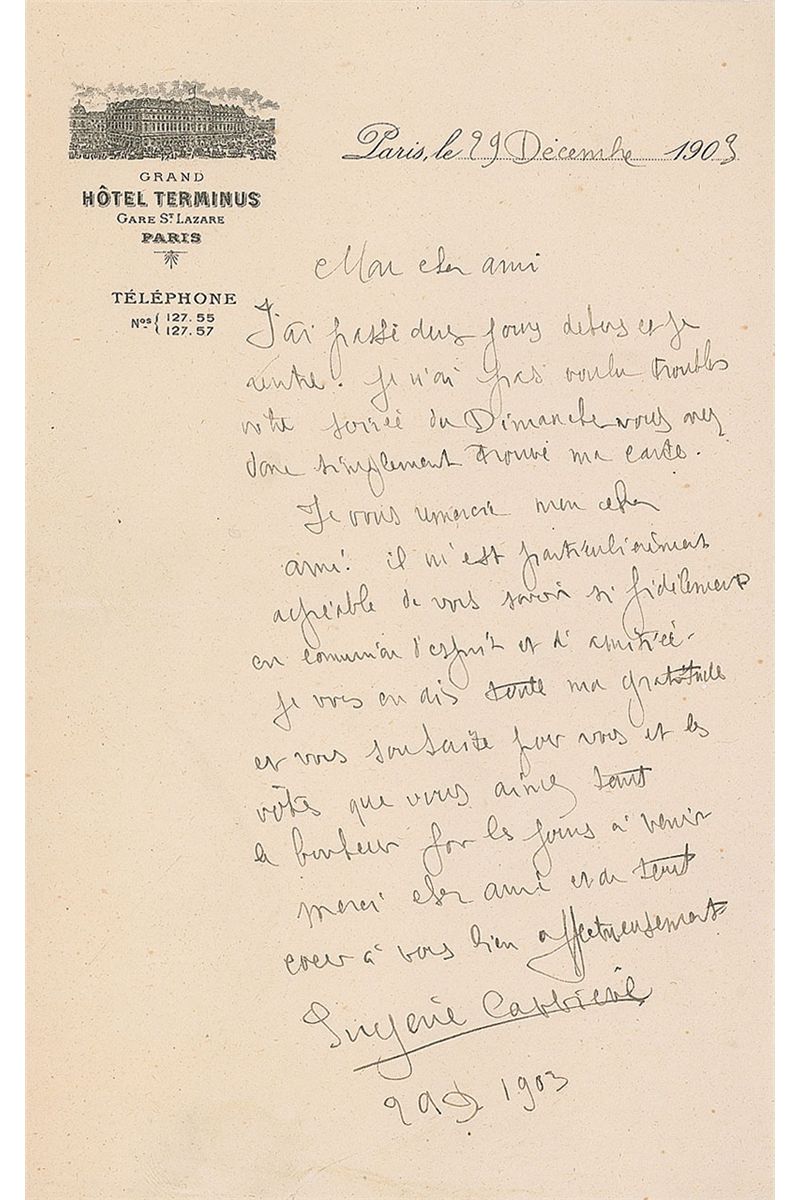 GRAND
HÔTEL TERMINUS
GARE ST LAZARE
PARIS
TÉLÉPHONE
Nos { 127.55
127.57
Paris, le 29 Décembre 1903
Mon cher ami
J'ai passé deux jours dehors et je
rentre. Je n'ai pas voulu troubler
votre soirée du Dimanche vous avez
donc simplement trouvé ma carte.
Je vous remercie mon cher
ami. il m'est particulièrement
agréable de vous savoir si fidèlement
en communion d'esprit et d'amitiée.
je vous en dis toute ma gratitude
et vous souhaite pour vous et les
vôtres que vous aimez tant
le bonheur pour les jours à venir
merci cher ami et de tout
coeur à vous bien affectueusement
Eugène Carrière
29 D 1903